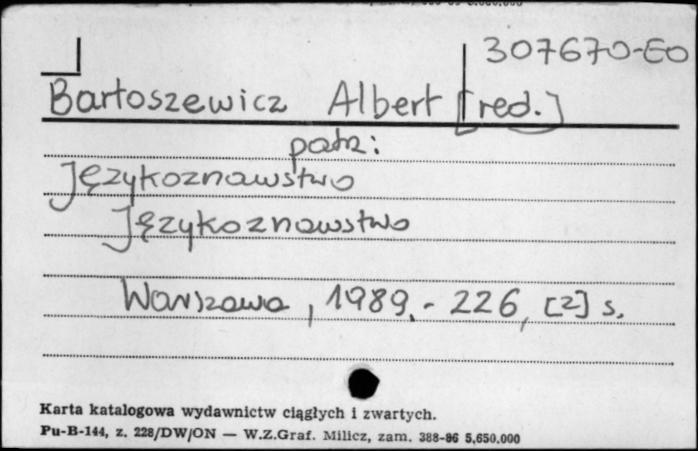 307670-EO
Bartoszewicz Albert [red.]
patrz:
Językoznawstwo
Językoznawstwo
Warszawa, 1989. - 226, [2] s.
Karta katalogowa wydawnictw ciągłych i zwartych.
Pu-B-144, z. 228/DW/ON — W.Z.Graf. Milicz, zam. 388-86 5,650.000